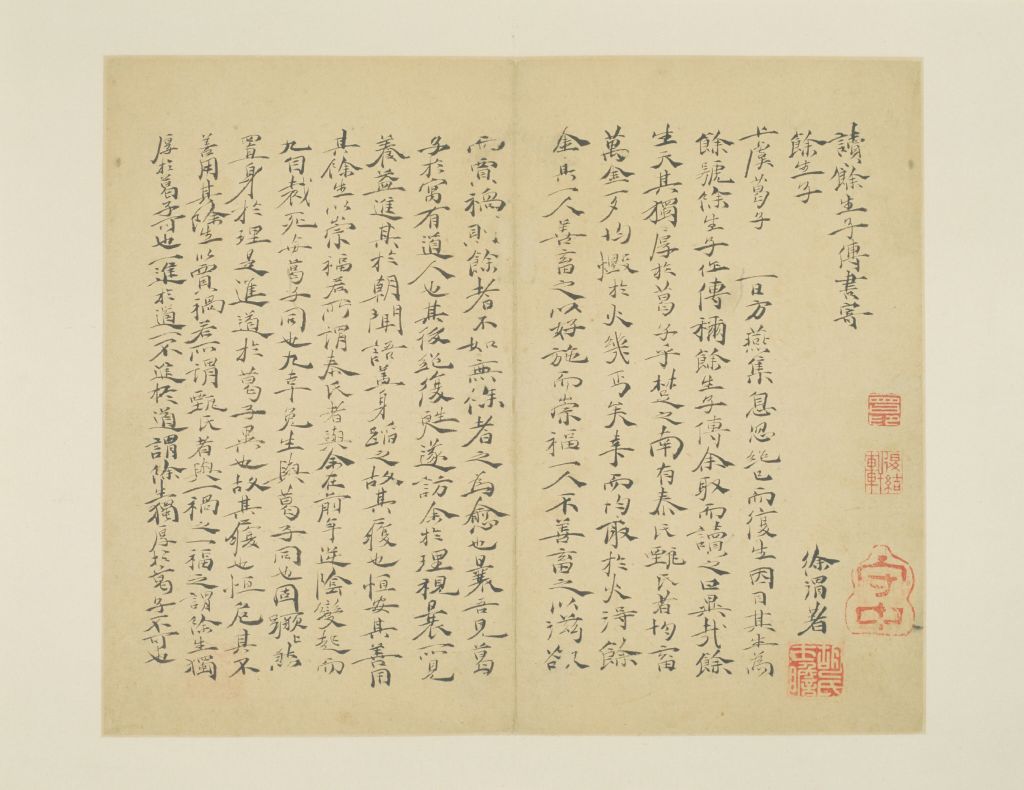 讀餘生子傳書寄
餘生子
徐渭著
上虞葛子 一日方燕集息忽絕已而復生因目其生為
餘號餘生子作傳稱餘生子傳余取而讀之曰異哉餘
生天其獨厚於葛子乎楚之南有秦氏甄氏者均畜
萬金一夕均燬於火幾丐矣幸而均取於火得餘
金焉一人善畜之以好施而崇福一人不善畜之以滋欲
而賈禍則餘者不如無餘者之為愈也曩吾見葛
子於寓有道人也其後絕復甦遂訪余於理視曩所見
養益進其於朝聞語蓋身蹈之故其癈也恒安其善用
其餘生以崇福若所謂秦氏者與余在前年逆陰變起而
九自裁死每葛子同也九幸免生與葛子同也固
置身於理是進道於葛子異也故其癈也恒危其不
善用其餘生以賈禍若所謂甄氏者與一禍之一福之謂餘生獨
厚於葛子可也一進於道一不進於道謂餘生獨厚於葛子不可也
守中